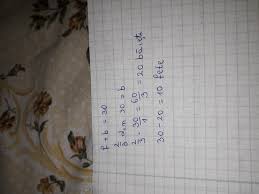 f + b = 30
2/3 din 30 = b
2/3 · 30/1 = 60/3 = 20 băieți
30 - 20 = 10 fete